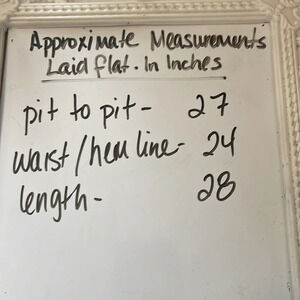 Approximate Measurements
Laid flat. In Inches
pit to pit - 27
waist/hem line - 24
length - 28